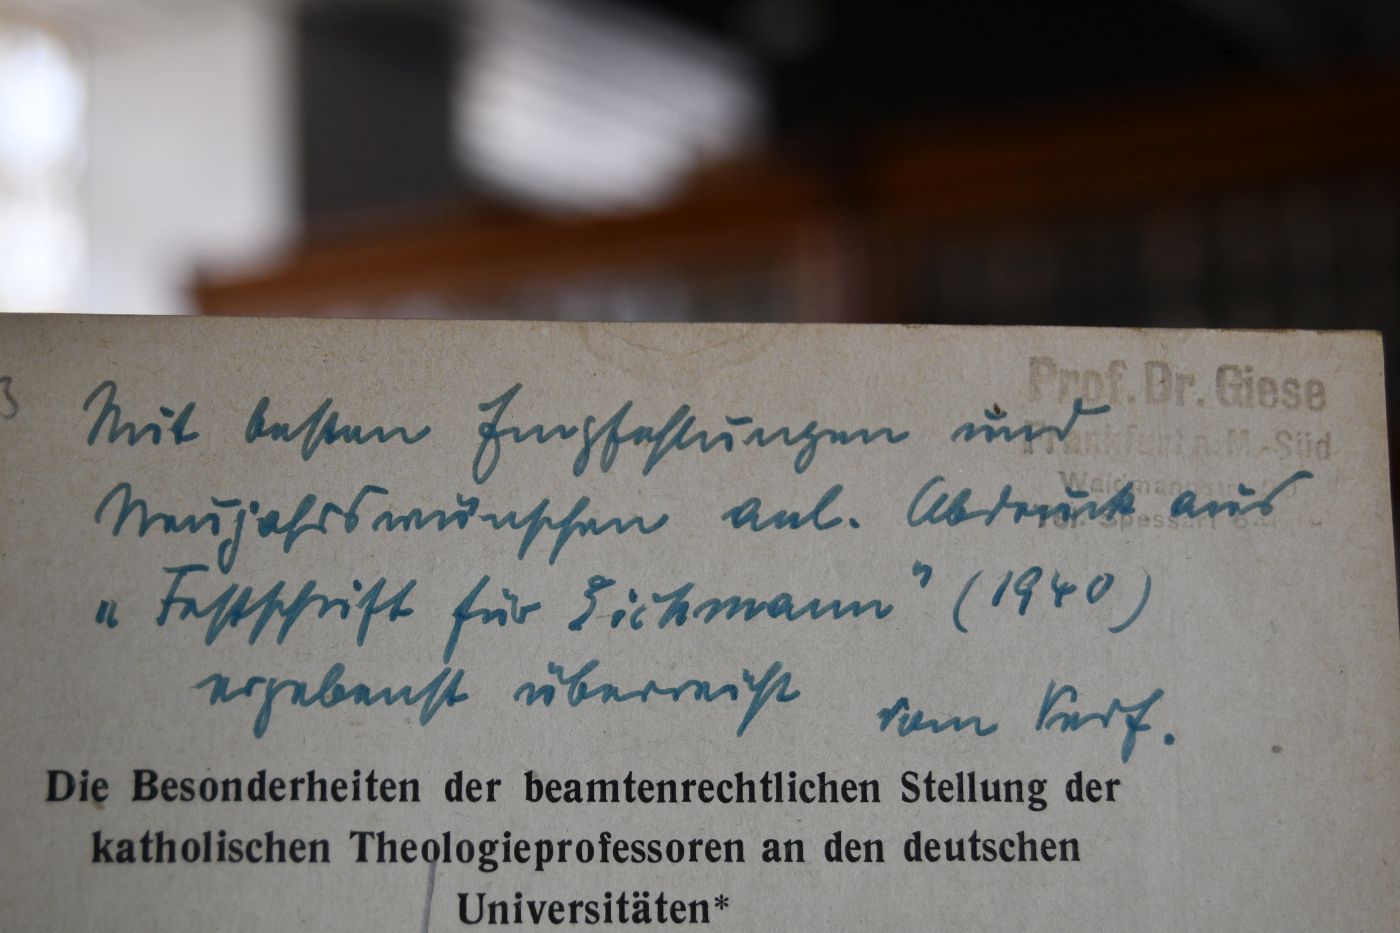 Prof. Dr. Giese
Frankfurt a. M.-Süd
Mit besten Empfehlungen und
Neujahrswünschen anl. Abdruck aus
"Festschrift für Eichmann" (1940)
ergebenst überreicht vom Verf.
Die Besonderheiten der beamtenrechtlichen Stellung der
katholischen Theologieprofessoren an den deutschen
Universitäten*